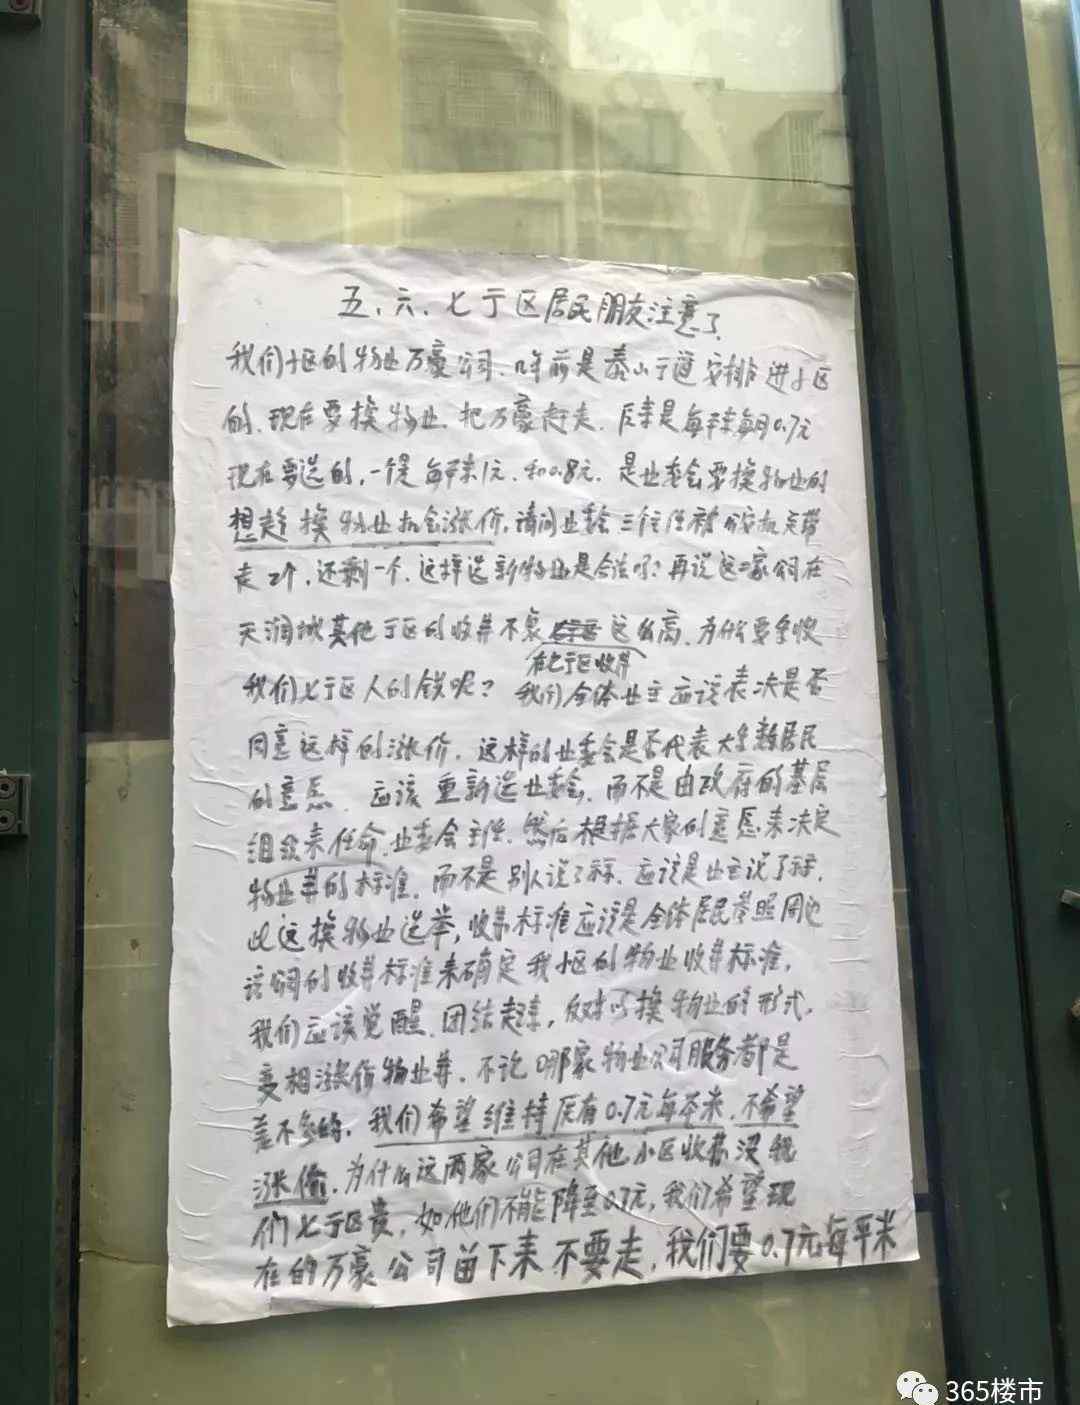 五、六、七亍区居民朋友注意了
我们小区的物业万豪公司、8年前是泰山亍道安排进小区
的、现在要换物业、把万豪赶走、原来是每平米每月0.7元
现在要选的,一个是每平米1元、和0.8元、是业委会要换物业的
想趁换物业机会涨价,请问业委会三个主任被公安机关带
走2个,还剩一个、这样选新物业是合法吗?再说这二家公司在
天润城其他亍区的收费不象这么高、为什么要多收
在七亍区收费
我们七亍区人的钱呢?我们全体业主应该表决是否
同意这样的涨价,这样的业委会是否代表大多数居民
的意愿、应该重新选业委会、而不是由政府的基层
组织来任命业委会主任、然后根据大家的意愿来决定
物业费的标准、而不是别人说了标、应该是业主说了标,
此这换物业选举,收费标准应该是全体居民参照周边
该公司的收费标准来确定我小区的物业收费标准,
我们应该觉醒、团结起来,反对以换物业的形式,
变相涨价物业费、不论哪家物业公司服务都是
差不多的,我们希望维持原有0.7元每平米、不希望
涨价,为什么这两家公司在其他小区收费没我
们七亍区贵,如他们不能降至0.7元,我们希望现
在的万豪公司留下来、不要走,我们要0.7元每平米
365楼市